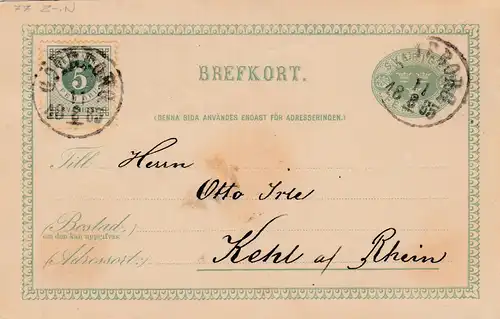 BREFKORT.
(DENNA SIDA ANVÄNDES ENDAST FÖR ADRESSERINGEN.)
5
Till Herrn
Otto Irle
(Bostad,
om den kan uppgifvas)
Kehl a/ Rhein
(Adressort:)